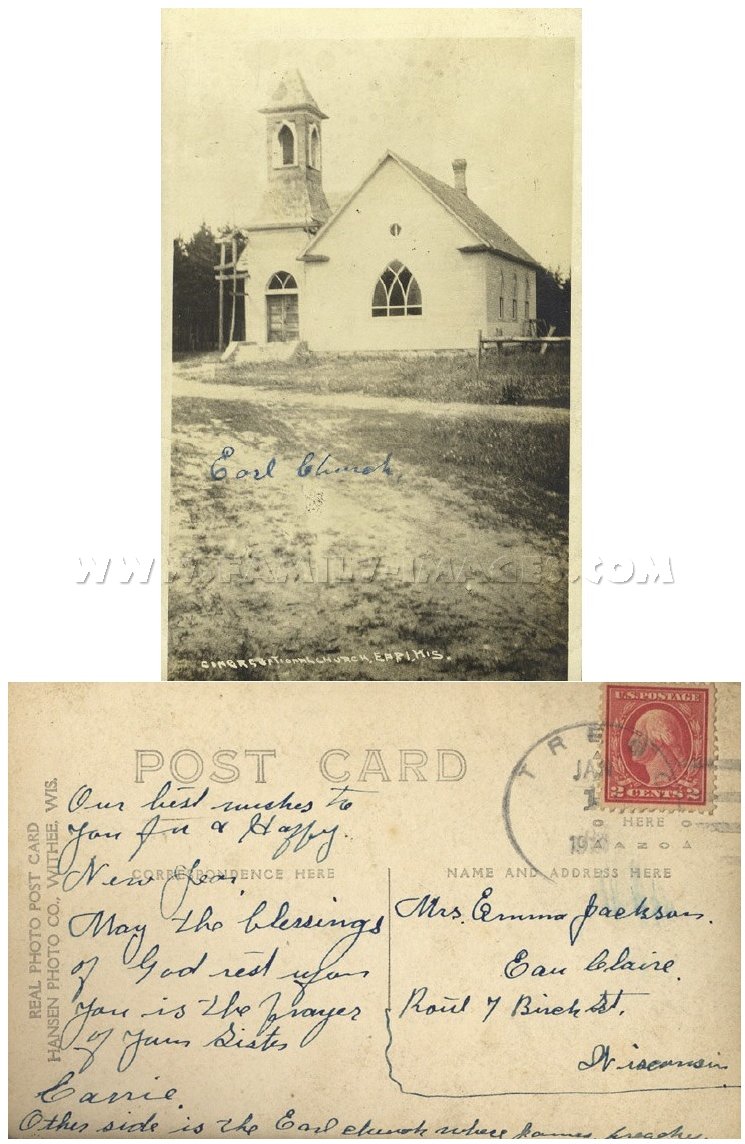 Earl Church.
WWW.FAMILY-IMAGES.COM
CONGREGATIONAL CHURCH, EARL, WIS.
POST CARD
REAL PHOTO POST CARD
HANSEN PHOTO CO., WITHEE, WIS.
Our best wishes to
you for a Happy.
New Year.
CORRESPONDENCE HERE
May the blessings
of God rest upon
you is the prayer
of your Sister
Carrie.
Other side is the Earl church where James preaches
U.S. POSTAGE
2 CENTS 2
TREGO
JAN
1
HERE
AZOA
NAME AND ADDRESS HERE
Mrs. Emma Jackson.
Eau Claire.
Rout 7 Birch St.
Wisconsin